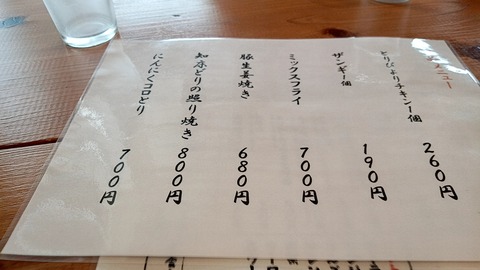 メニュー
とりびよりチキン1個 260円
ザンギ1個 190円
ミックスフライ 700円
豚生姜焼き 680円
知床どりの照り焼き 800円
にんにくコロとり 700円